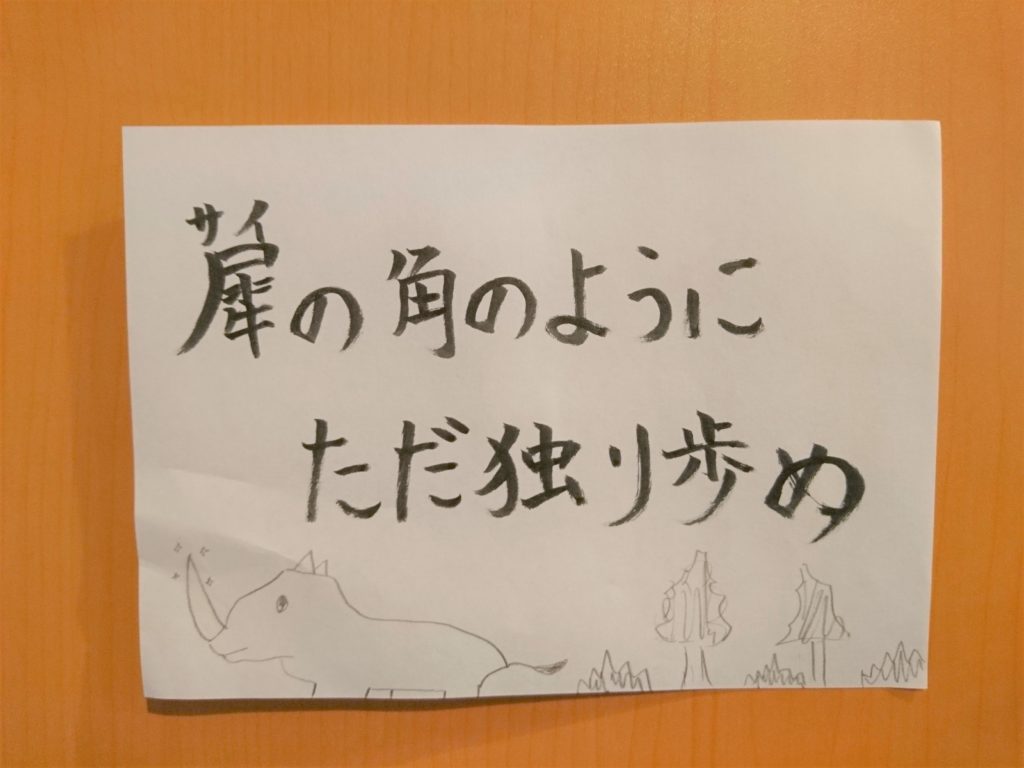 サイ
犀の角のように
ただ独り歩め